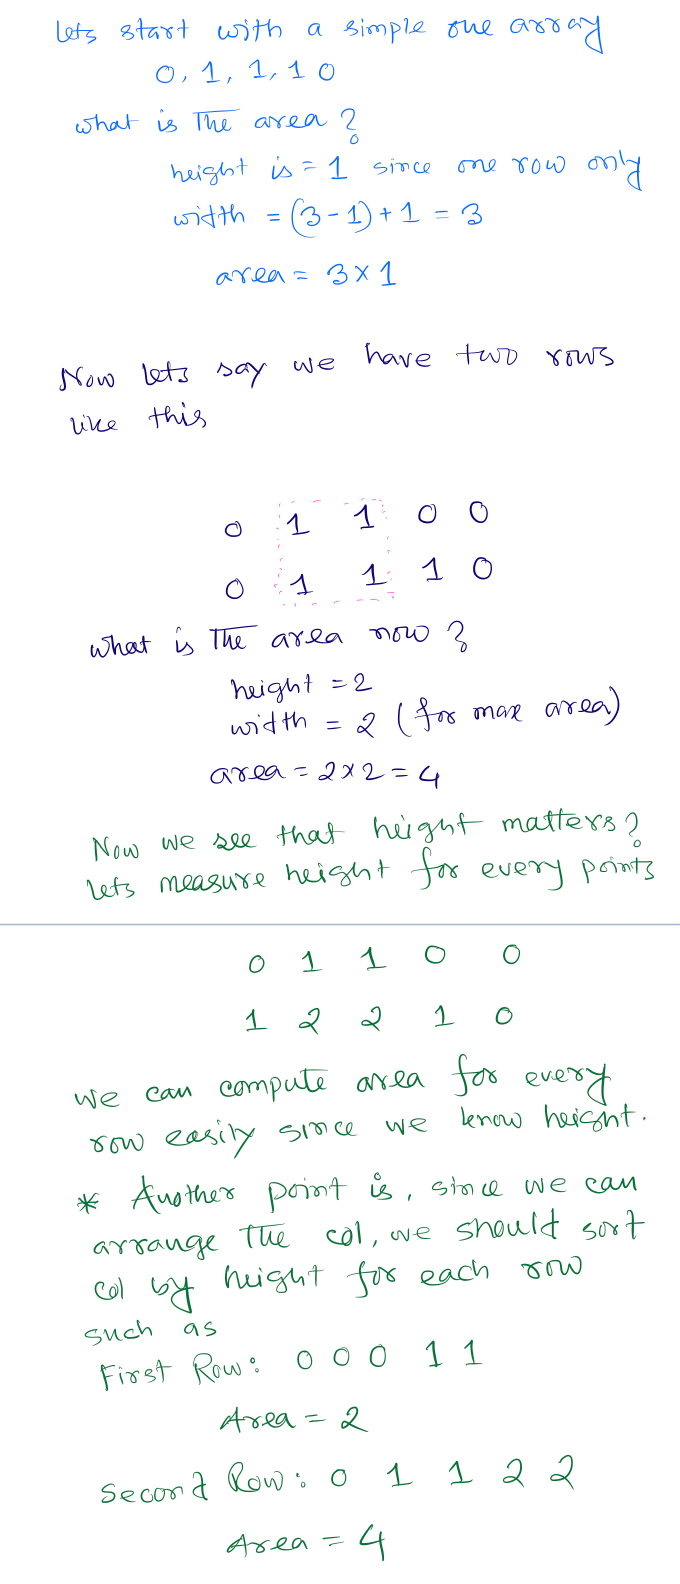 lets start with a simple one array
0, 1, 1, 1 0
what is the area?
height is = 1 since one row only
width = (3-1)+1 = 3
area = 3x1
Now lets say we have two rows
like this
0 1 1 0 0
0 1 1 1 0
what is the area now?
height = 2
width = 2 (for max area)
area = 2x2 = 4
Now we see that height matters?
lets measure height for every points
0 1 1 0 0
1 2 2 1 0
we can compute area for every
row easily since we know height.
* Another point is, since we can
arrange the col, we should sort
col by height for each row
such as
First Row: 0 0 0 1 1
Area = 2
Second Row: 0 1 1 2 2
Area = 4